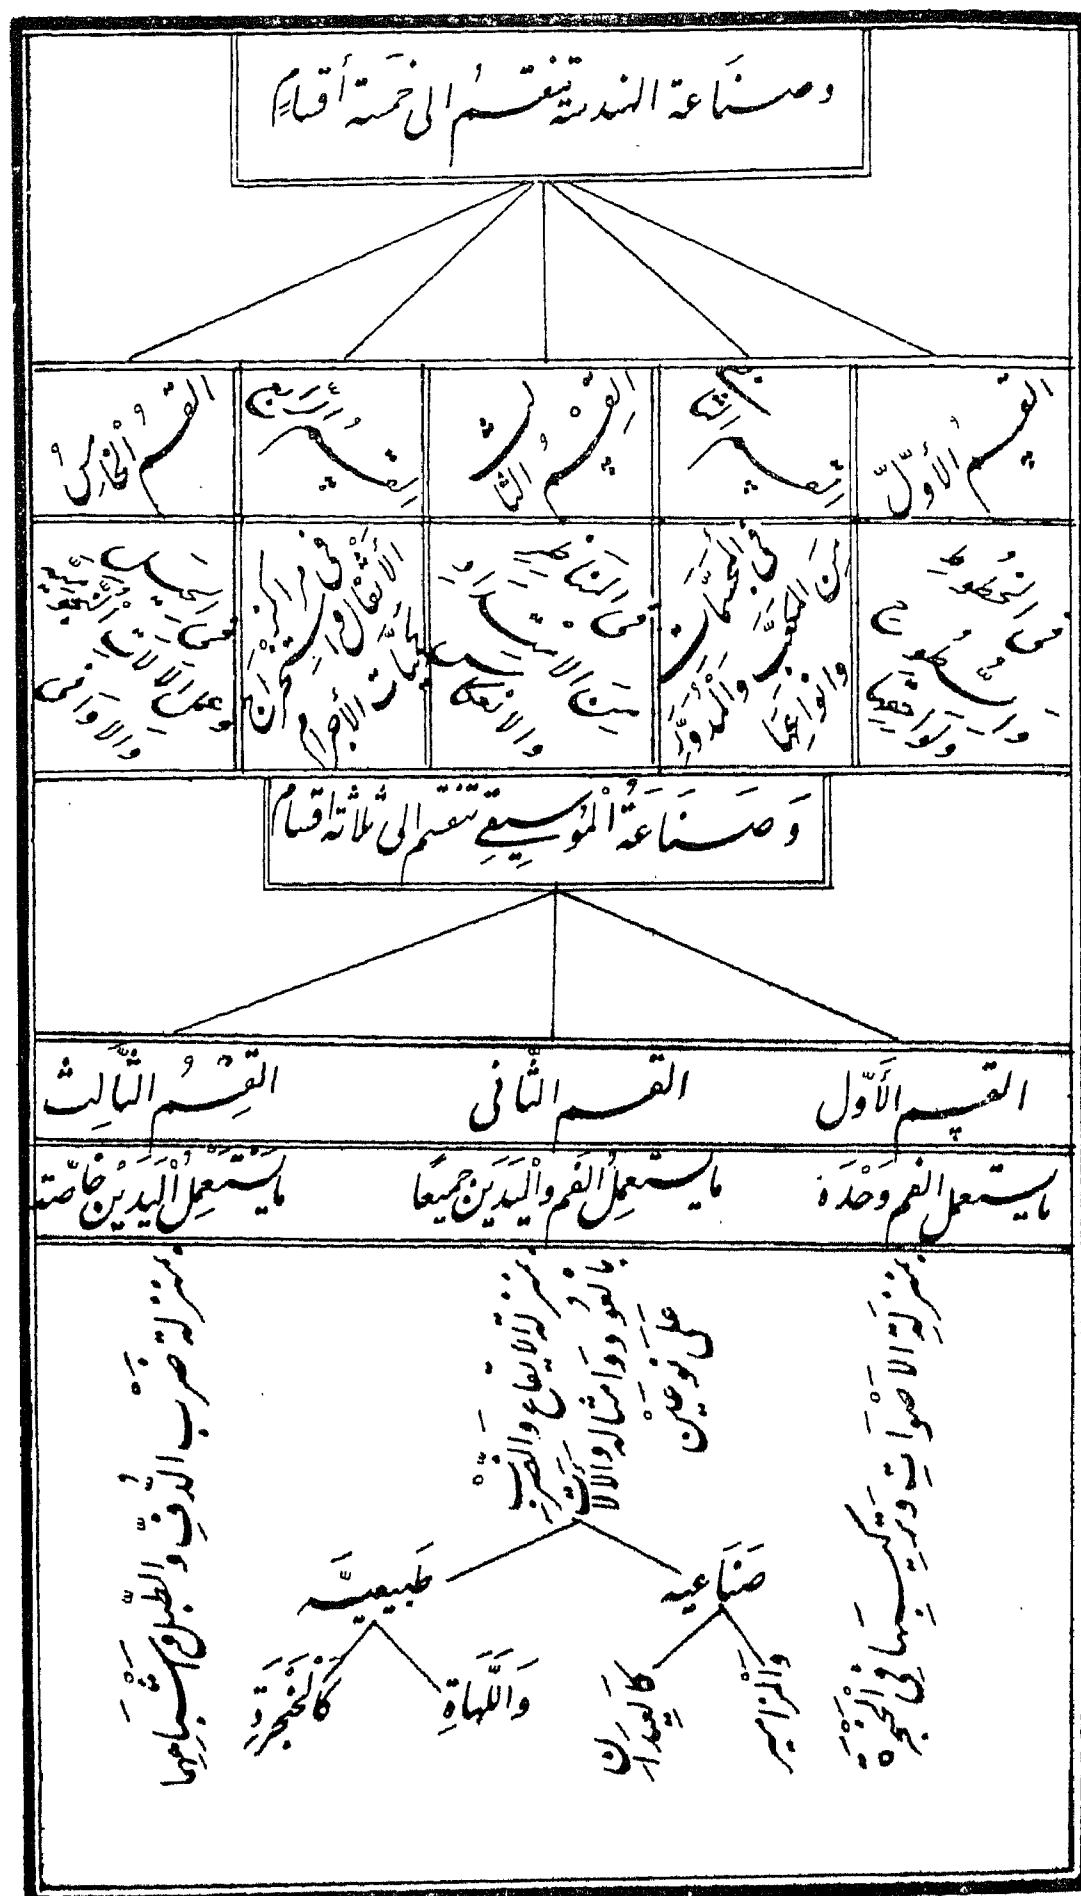 وصنَاعة الهندسة تنقسمُ الى خمَسة أقسامٍ
القِسمُ الأوّلّ
القسم الثانى
القِسْمُ الثالث
القسمُ الرَّابع
القسمُ الْخامِسُ
فى الخُطُوطِ
وَالسُّطُوح
وَلَوَاحقِهَا
فى المجسَّمات
مِنَ المكعَّب وَالْمُدَوَّرِ
وانوَاعهَا
فى المَنَاظِرِ
مِنَ الاسْتدَارَه
وَالانعكاس
فى مرَاكز
الأثْقال وَاسْتخرَاج
الأجرَام
فى الحِيَل
وَعمَل الآلاَتِ
وَالاوَانى
وَصَنَاعَةُ الْمُوسِيقِى تنقسم الى ثلاثة اقسام
القِسم الأَوّل
القسم الثَّانى
القِسْمُ الثَّالِث
مايستعمل الفم وَحْدَهُ
مايستعمِلُ الفَم وَالْيَدَيَن جميعًا
مايَسْتَعمِلُ الْيَدَيْنِ خاصّة
بمنزِلَةِ الاَصْوَاتِ وَتركيبهَا فِى الْحَنْجَرَة
بمنزلة الايقاع وَالضَّرْب
بالعُود وَامثاله وَالآلات
عَلَى نَوعَيْن
بمنزلة ضَرْب الدُّفِّ وَالطّبل وَاشْبَاهِهِمَا
صَنَاعيه
طَبيعيَّه
وَالمَزامير
كالعِيدَان
وَاللَّهاةِ
كَالْحَنْجَرَةِ